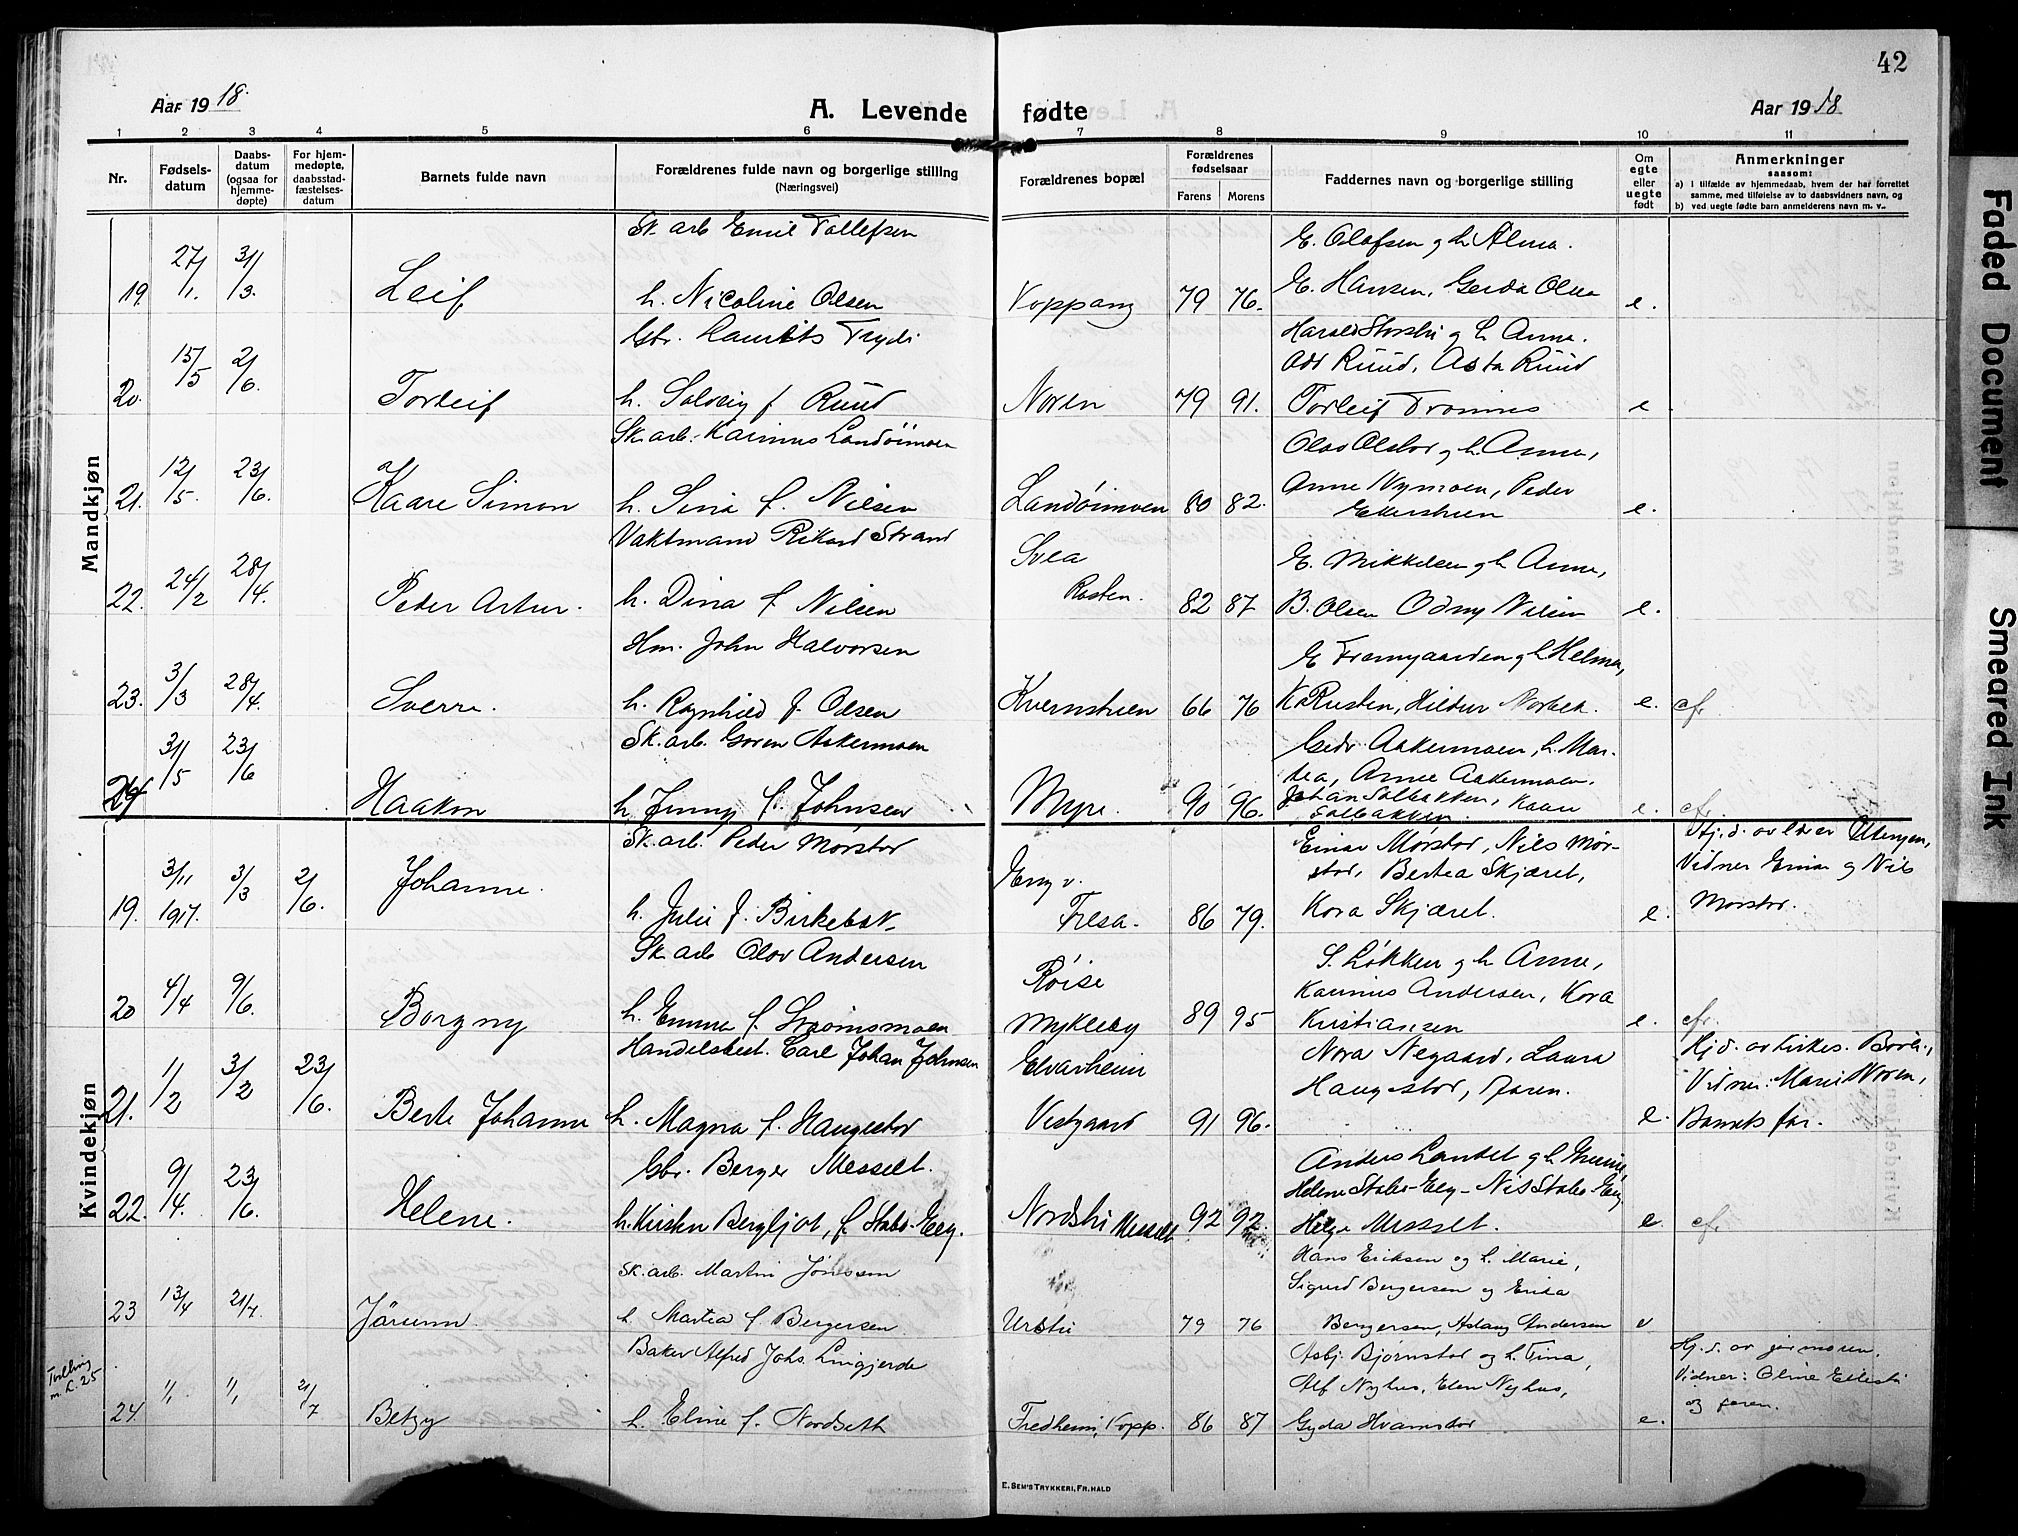 42
Aar 1918.
A. Levende fødte
Aar 1918
1 2 3 4 5 6 7 8 9 10 11
Nr.
Fødsels-
datum
Daabs-
datum
(ogsaa for
hjemme-
døpte)
For hjem-
medøpte,
daabsstad-
fæstelses-
datum
Barnets fulde navn
Forældrenes fulde navn og borgerlige stilling
(Næringsvei)
Forældrenes bopæl
Forældrenes
fødselsaar
Farens Morens
Faddernes navn og borgerlige stilling
Om
egte
eller
uegte
født
Anmerkninger
saasom:
a) i tilfælde av hjemmedaab, hvem der har forrettet
samme, med tilføielse av to daabsvidners navn, og
b) ved uegte fødte barn anmelderens navn m. v..
Mandkjøn
Sk. arb Emil Tollefsen
E. Olafsen og h. Alma.
19. 27/1. 31/3. Leif h. Nicoline Olsen Koppang 79 76. E. Hansen, Gerda Olsen e.
Gbr. Laurits Trydi
Harald Storstu og h. Anne.
Odd Ruud, Asta Ruud
20. 15/5 2/6. Torleif h. Solveig f. Ruud Noren 79 91. Torleif Tronnes e
Sk. arb. Karinus Landøimoen
Olav Olstor og h. Anne,
Anne Nymoen, Peder
21. 12/5. 23/6. Kaare Simon h. Sina f. Nilsen Landøimoen 80 82. e.
Vaktmand Rikard Strand
Svea
E. Mikkelsen og h Anne,
22. 24/2 28/4. Peder Artur. h. Dina f. Nilsen Rasten. 82 87 B. Olsen Odny Nilsen e.
Hm. John Halvorsen
E Framgaarden og h. Helma,
23. 3/3 28/4. Sverre. h. Ragnhild f. Olsen Kvernstuen 66 76 K. Rusten, Hildur Norbek. e. cfr
Sk. arb. Goren Aakermoen
Gedr Aakermoen, h. Mar-
tea, Arne Aakermoen.
24 31/5 23/6 Haakon h. Jenny f. Johnsen Myre. 90 96. Johan Solbakken, Kaare e. cfr
Solbakken.
Kvindekjøn
Sk. arb. Peder Mørstor
Einar Mørstor, Nils Mør-
Hj. d. av
Johanne.
stor, Bertea Skjæret,
Vidner Einar og Nils
19. 3/11 1917. 3/3 2/6. h. Julie f. Birkebak Tresa. 86 79. Kora Skjæret. e. Mørstor.
Sk. arb Olav Andersen
Røise
S. Løkken og h. Anne,
Karinus Andersen, Kora
20 4/4 9/6. Borgny h. Emma f. Strømsmoen Mykleby 89 95 Kristiansen e. cfr.
Handelsbest. Carl Johan Johnsen
Elvarheim
Nora Negaard, Laura
Haugestor, faren.
Vidner: Marie Noren,
21. 1/2 3/2 23/6. Berte Johanne h. Magna f. Haugestor Vestgaard 91 96. e. Barnets far.
Gbr. Berger Messelt.
Anders Landet og h.
Helene Stabs-Elg - Nils Stabs-Elg
22. 9/4. 23/6. Helene. h. Kirsten Bergljot, f. Stabs-Elg. Nordstu Messelt 92 92. Helge Messelt. e. cfr.
Sk. arb. Martin Jonsson
Hans Eriksen og h. Marie,
Sigurd Bergersen og Erida
23 13/4 21/7. Jørunn h. Martea f. Bergersen. Urstu 79 76 Bergersen, Aslaug Andersen e
Baker Alfred Johs. Lingjerde
Asbj. Bjørnstor og h. Tina,
Hj. d. av jormoren.
Tvilling
m. L. 25
Alf Nyhus, Elen Nyhus,
24. 1/1 1/1 21/7 Betzy h. Eline f. Nordseth Fredheim, Kopp. 86 87 Gyda Hvamstor e.
og faren.
E. SEM'S TRYKKERI, FR. HALD
Faded Document
Smeared Ink